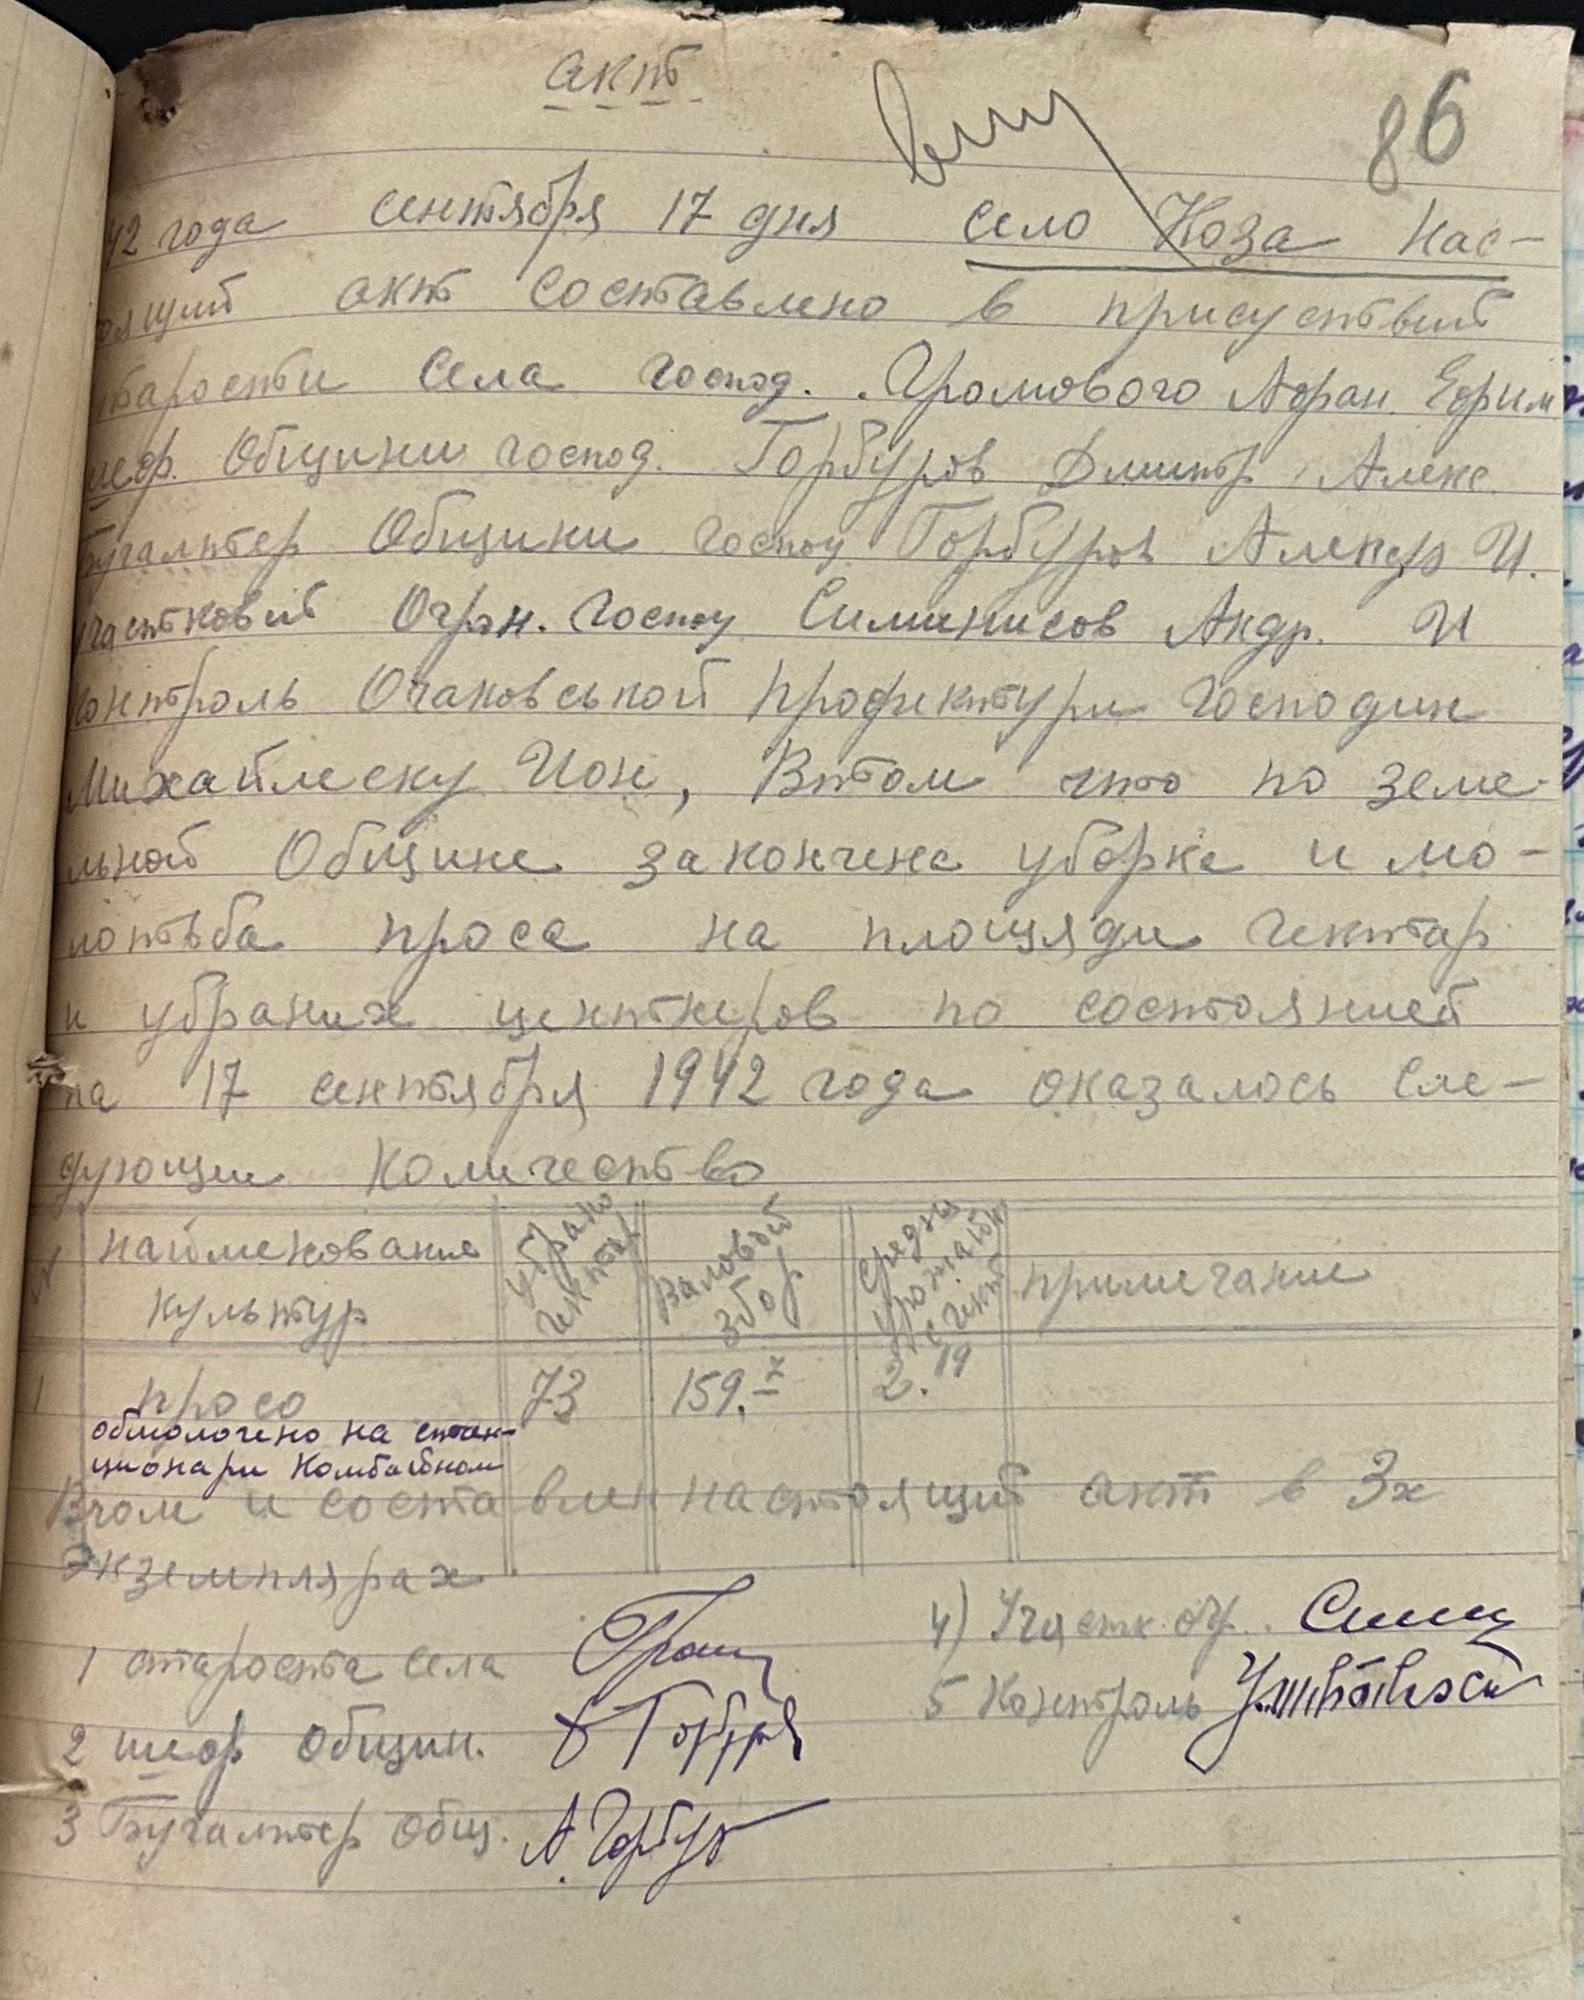 акт
86
42 года сентября 17 дня село Коза Нас-
оящий акт составлено в присуствий
тарости села господ. Громового Афран. Ефрим
шеф. Общини господ. Горбуров Дмитр Алекс.
Бугалтер Общини госпоу Горбуров Алекср И.
участковий Огрн. госпоу Симинисов Андр. И
контроль Очаковськой профиктури господин
Михайлеску Ион, Втом что по земе-
льной Общине закончена уборке и мо-
лотьба просе на площяди гектар
и убраних центнеров по состояний
на 17 сентября 1942 года оказалось сле-
дующие количество
N найменование культур убрано гектар Валовой збор средня урожайн с гект примечание
1 просо 73 159.7 2.19
обмолочено на стан-
ционари Комбайном
Вчом и составлен настоящий акт в 3х
Экземплярах
1 староста села
2 шеф общин. Горбуров
3 Бугалтер общ. А. Горбур
4) Участк. огр.
5 Контроль